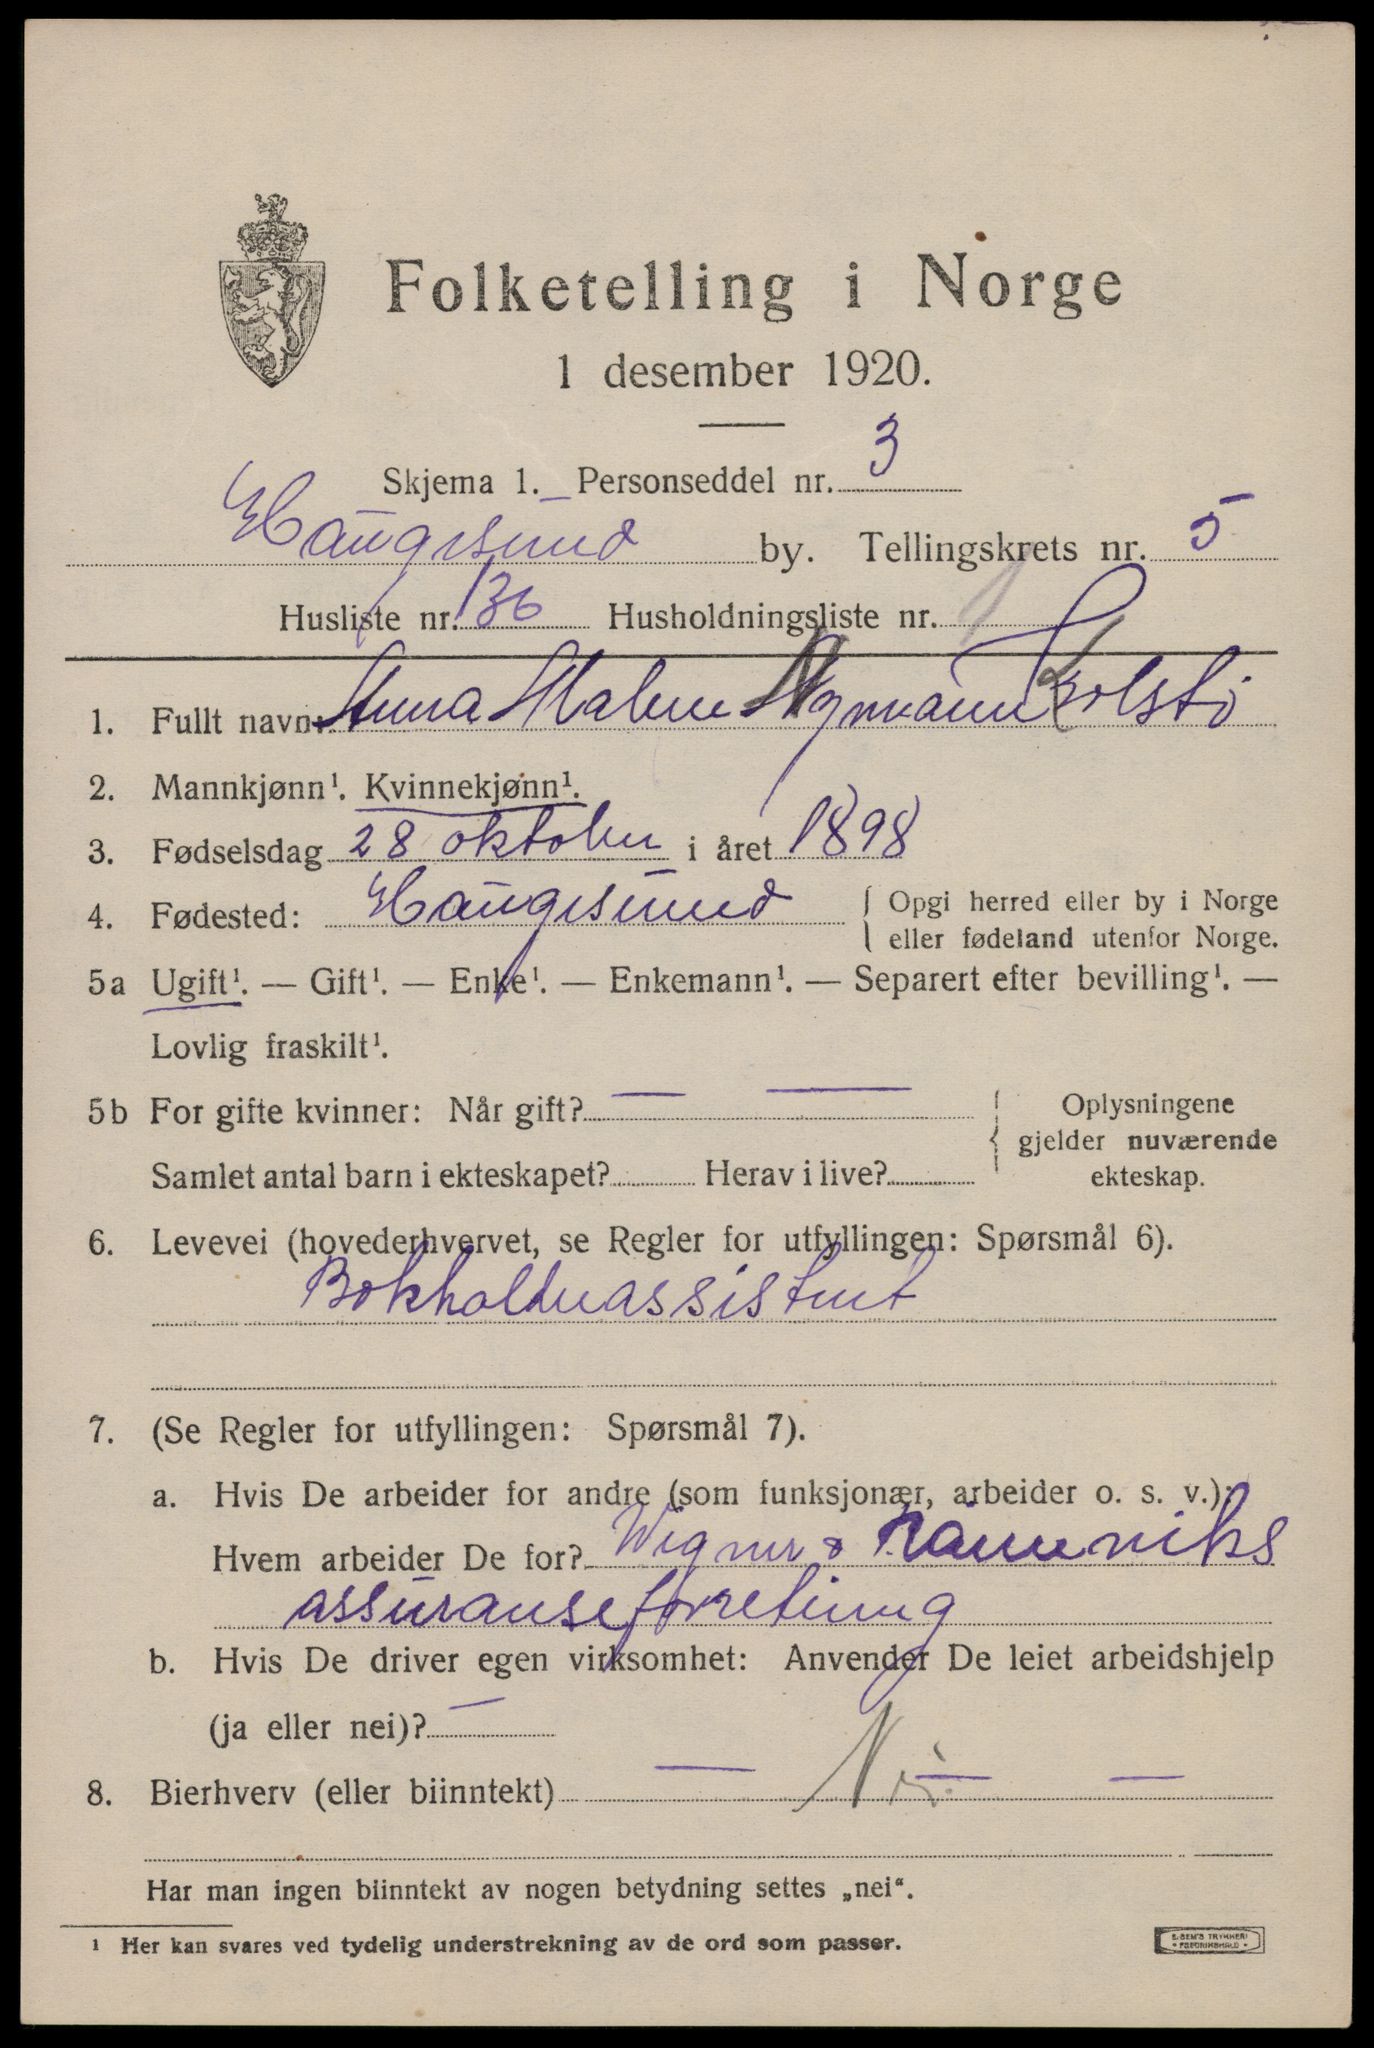 Folketelling i Norge
1 desember 1920.
Skjema 1. Personseddel nr. 3
Haugesund by. Tellingskrets nr. 5
Husliste nr. 136 Husholdningsliste nr. 1
1. Fullt navn: Anna Malene Nymann Kolstø
2. Mannkjønn¹. Kvinnekjønn¹.
3. Fødselsdag 28 oktober i året 1898
4. Fødested: Haugesund { Opgi herred eller by i Norge
eller fødeland utenfor Norge.
5a Ugift¹. — Gift¹. — Enke¹. — Enkemann¹. — Separert efter bevilling¹. —
Lovlig fraskilt¹.
5b For gifte kvinner: Når gift? — — { Oplysningene
gjelder nuværende
Samlet antal barn i ekteskapet? Herav i live? ekteskap.
6. Levevei (hovederhvervet, se Regler for utfyllingen: Spørsmål 6).
Bokholderassistent
7. (Se Regler for utfyllingen: Spørsmål 7).
a. Hvis De arbeider for andre (som funksjonær, arbeider o. s. v.):
Hvem arbeider De for? Wigner &
assuranseforretning
b. Hvis De driver egen virksomhet: Anvender De leiet arbeidshjelp
(ja eller nei)? —
8. Bierhverv (eller biinntekt) — Nei. — —
Har man ingen biinntekt av nogen betydning settes „nei“.
¹ Her kan svares ved tydelig understrekning av de ord som passer.
E. SEM'S TRYKKERI
• FREDRIKSHALD •